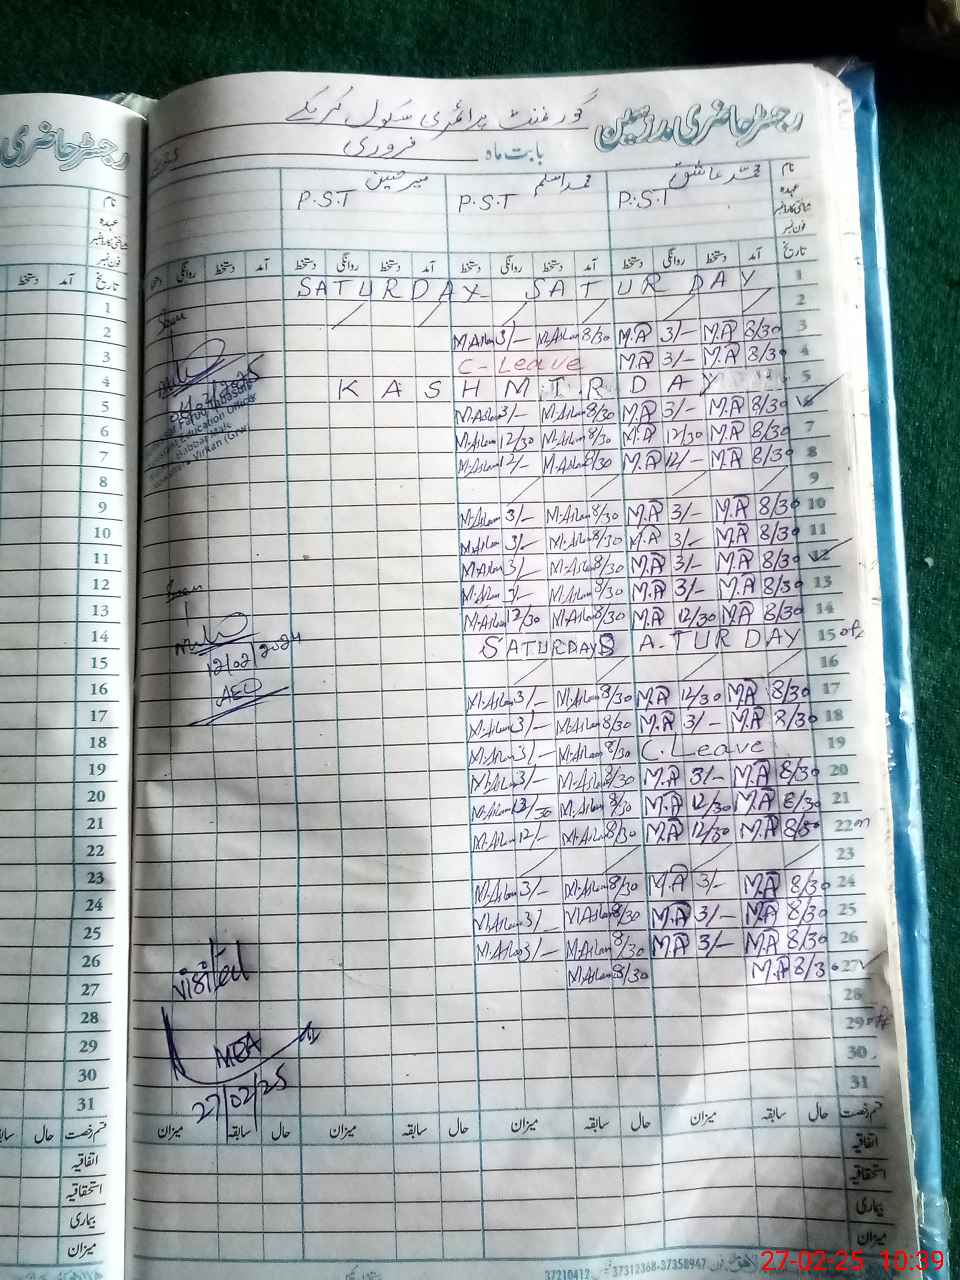 رجسٹر حاضری مدرسین
گورنمنٹ پرائمری سکول
بابت ماہ فروری
نام محمد عاشق محمد اسلم
عہدہ P.S.T P.S.T P.S.T
شناختی کارڈ نمبر
فون نمبر
تاریخ آمد دستخط روانگی دستخط آمد دستخط روانگی دستخط آمد دستخط روانگی دستخط آمد دستخط روانگی
1 SATURDAY SATURDAY
2
3 M.Aslam 3/- M.Aslam 8/30 M.A 3/- M.A 8/30
4 C-Leave M.A 3/- M.A 8/30
5 KASHMIR DAY
6 M.Aslam 3/- M.Aslam 8/30 M.A 3/- M.A 8/30
7 M.Aslam 12/30 M.Aslam 8/30 M.A 12/30 M.A 8/30
8 M.Aslam 12/- M.Aslam 8/30 M.A 12/- M.A 8/30
9
10 M.Aslam 3/- M.Aslam 8/30 M.A 3/- M.A 8/30
11 M.Aslam 3/- M.Aslam 8/30 M.A 3/- M.A 8/30
12 M.Aslam 3/- M.Aslam 8/30 M.A 3/- M.A 8/30
13 M.Aslam 3/- M.Aslam 8/30 M.A 3/- M.A 8/30
14 M.Aslam 12/30 M.Aslam 8/30 M.A 12/30 M.A 8/30
15 SATURDAY SATURDAY
16
17 M.Aslam 3/- M.Aslam 8/30 M.A 12/30 M.A 8/30
18 M.Aslam 3/- M.Aslam 8/30 M.A 3/- M.A 8/30
19 M.Aslam 3/- M.Aslam 8/30 C.Leave
20 M.Aslam 3/- M.Aslam 8/30 M.A 3/- M.A 8/30
21 M.Aslam 12/30 M.Aslam 8/30 M.A 12/30 M.A 8/30
22 M.Aslam 12/- M.Aslam 8/30 M.A 12/30 M.A 8/30
23
24 M.Aslam 3/- M.Aslam 8/30 M.A 3/- M.A 8/30
25 M.Aslam 3/- M.Aslam 8/30 M.A 3/- M.A 8/30
26 M.Aslam 3/- M.Aslam 8/30 M.A 3/- M.A 8/30
27 M.Aslam 8/30 M.A 8/30
28
29 off
30
31
Seen
Education Officer
Seen
12/02/2024
AEO
visited
MEA
27/02/25
قسم رخصت حال سابقہ میزان حال سابقہ میزان حال سابقہ میزان حال سابقہ میزان
اتفاقیہ
استحقاقیہ
بیماری
میزان
37210412 37312368-37358947 فون
رجسٹر حاضری
نام
عہدہ
شناختی کارڈ نمبر
فون نمبر
تاریخ آمد دستخط
1
2
3
4
5
6
7
8
9
10
11
12
13
14
15
16
17
18
19
20
21
22
23
24
25
26
27
28
29
30
31
قسم رخصت حال سابقہ
اتفاقیہ
استحقاقیہ
بیماری
میزان
27-02-25 10:39